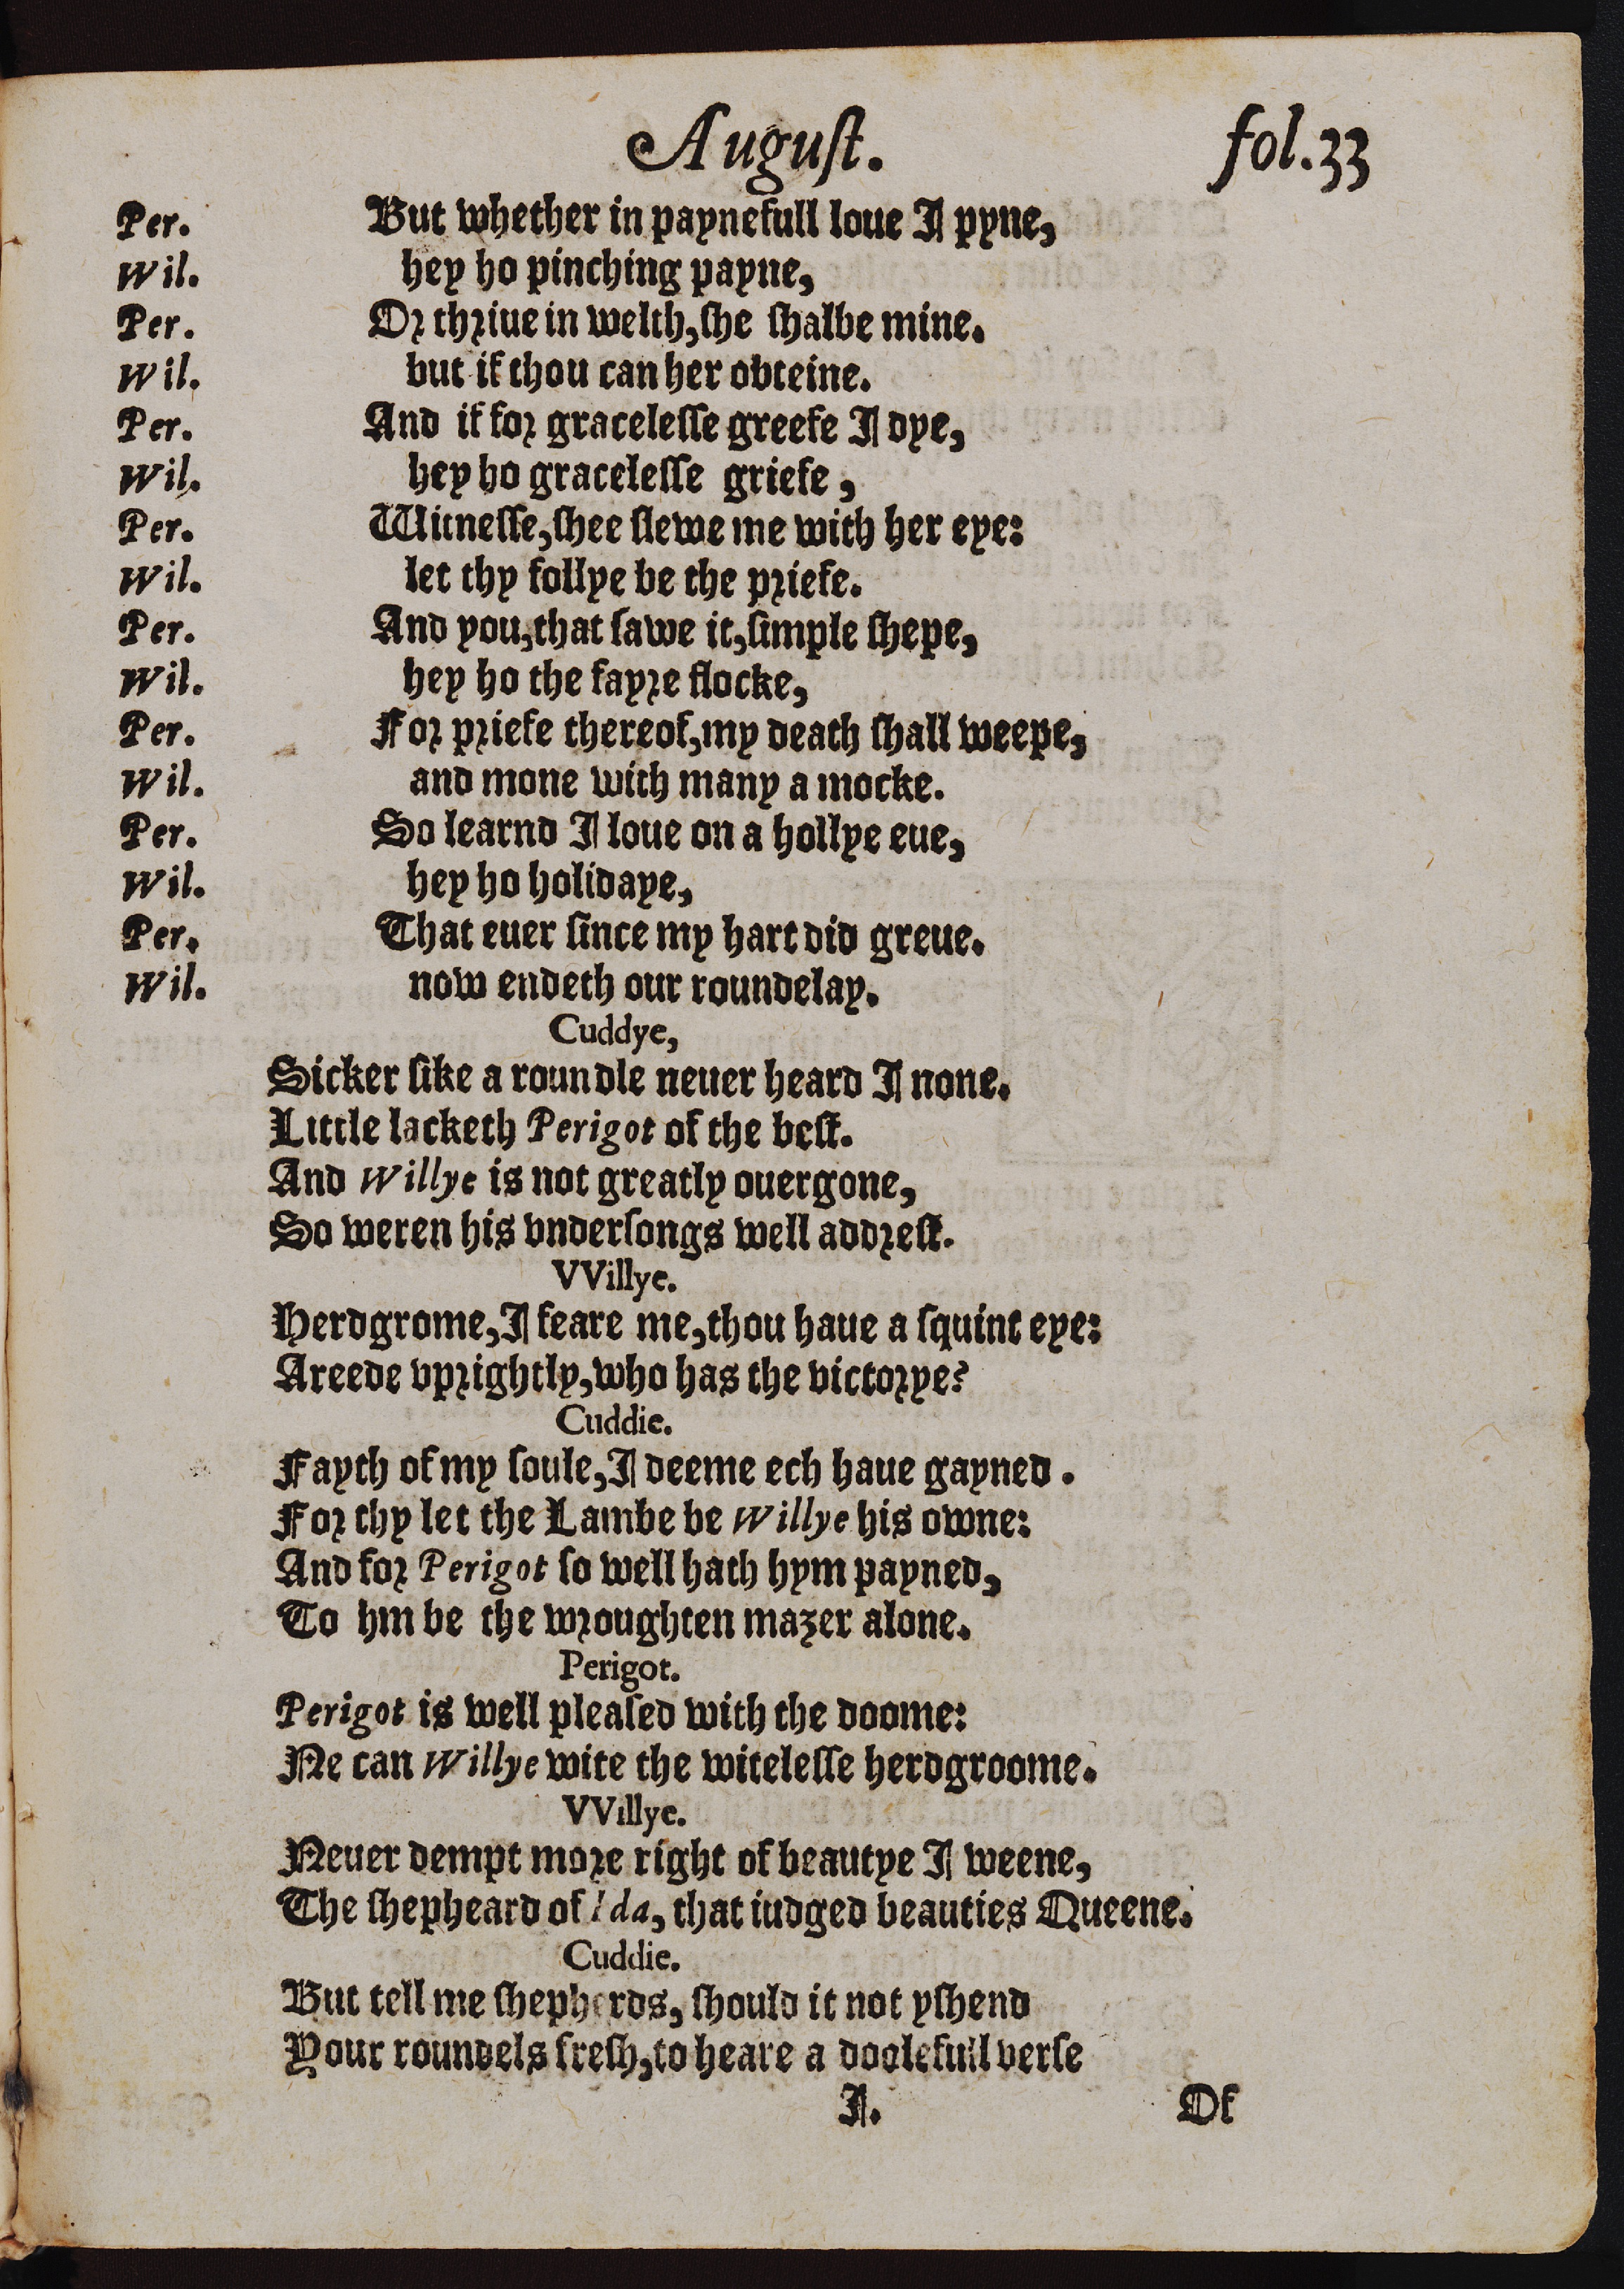 Auguſt. fol.33
Per. But whether in paynefull loue I pyne,
Wil. hey ho pinching payne,
Per. Or thriue in welth,ſhe ſhalbe mine.
Wil. but if thou can her obteine.
Per. And if for graceleſſe greefe I dye,
Wil. hey ho graceleſſe griefe,
Per. Witneſſe,ſhee ſlewe me with her eye:
Wil. let thy follye be the priefe.
Per. And you,that ſawe it,ſimple ſhepe,
Wil. hey ho the fayre flocke,
Per. For priefe thereof,my death ſhall weepe,
Wil. and mone with many a mocke.
Per. So learnd I loue on a hollye eue,
Wil. hey ho holidaye,
Per. That euer ſince my hart did greue.
Wil. now endeth our roundelay.
Cuddye,
Sicker ſike a roundle neuer heard I none.
Little lacketh Perigot of the beſt.
And Willye is not greatly ouergone,
So weren his vnderſongs well addreſt.
VVillye.
Herdgrome,I feare me,thou haue a ſquint eye:
Areede vprightly,who has the victorye?
Cuddie.
Fayth of my ſoule,I deeme ech haue gayned.
For thy let the Lambe be Willye his owne:
And for Perigot ſo well hath hym payned,
To hm be the wroughten mazer alone.
Perigot.
Perigot is well pleaſed with the doome:
Ne can Willye wite the witeleſſe herdgroome.
VVillye.
Neuer dempt more right of beautye I weene,
The ſhepheard of Ida, that iudged beauties Queene.
Cuddie.
But tell me ſhepherds, ſhould it not yſhend
Your roundels freſh,to heare a doolefull verſe
I. Of